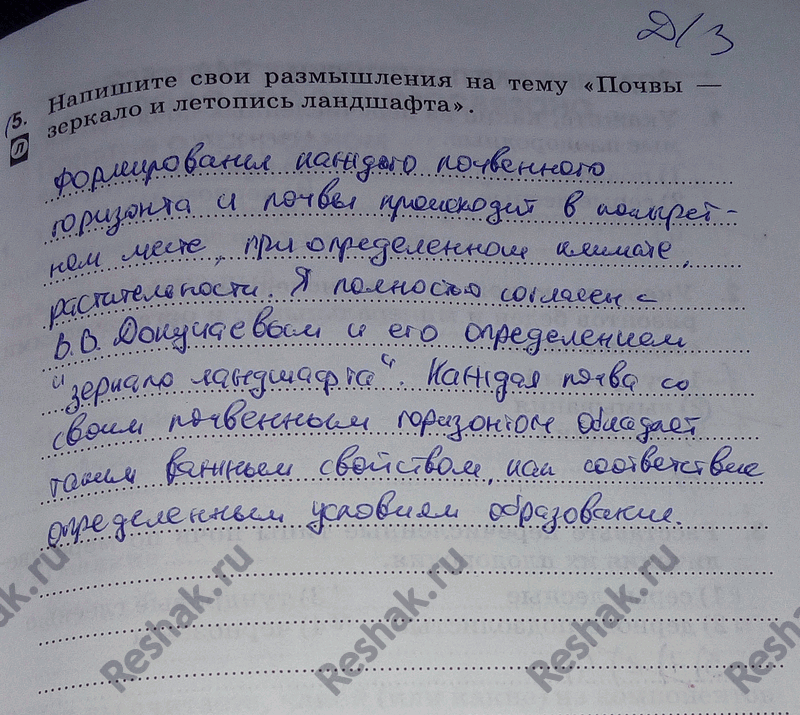 Д/З
5. Напишите свои размышления на тему «Почвы —
зеркало и летопись ландшафта».
Л
формирования каждого почвенного
горизонта и почвы происходит в конкрет-
ном месте, при определенном климате,
растительности. Я полностью согласен с
В.В. Докучаевым и его определением
"зеркало ландшафта". Каждая почва со
своим почвенным горизонтом обладает
таким важным свойством, как соответствие
определенным условиям образования.
Reshak.ru
Reshak.ru
Reshak.ru
Reshak.ru